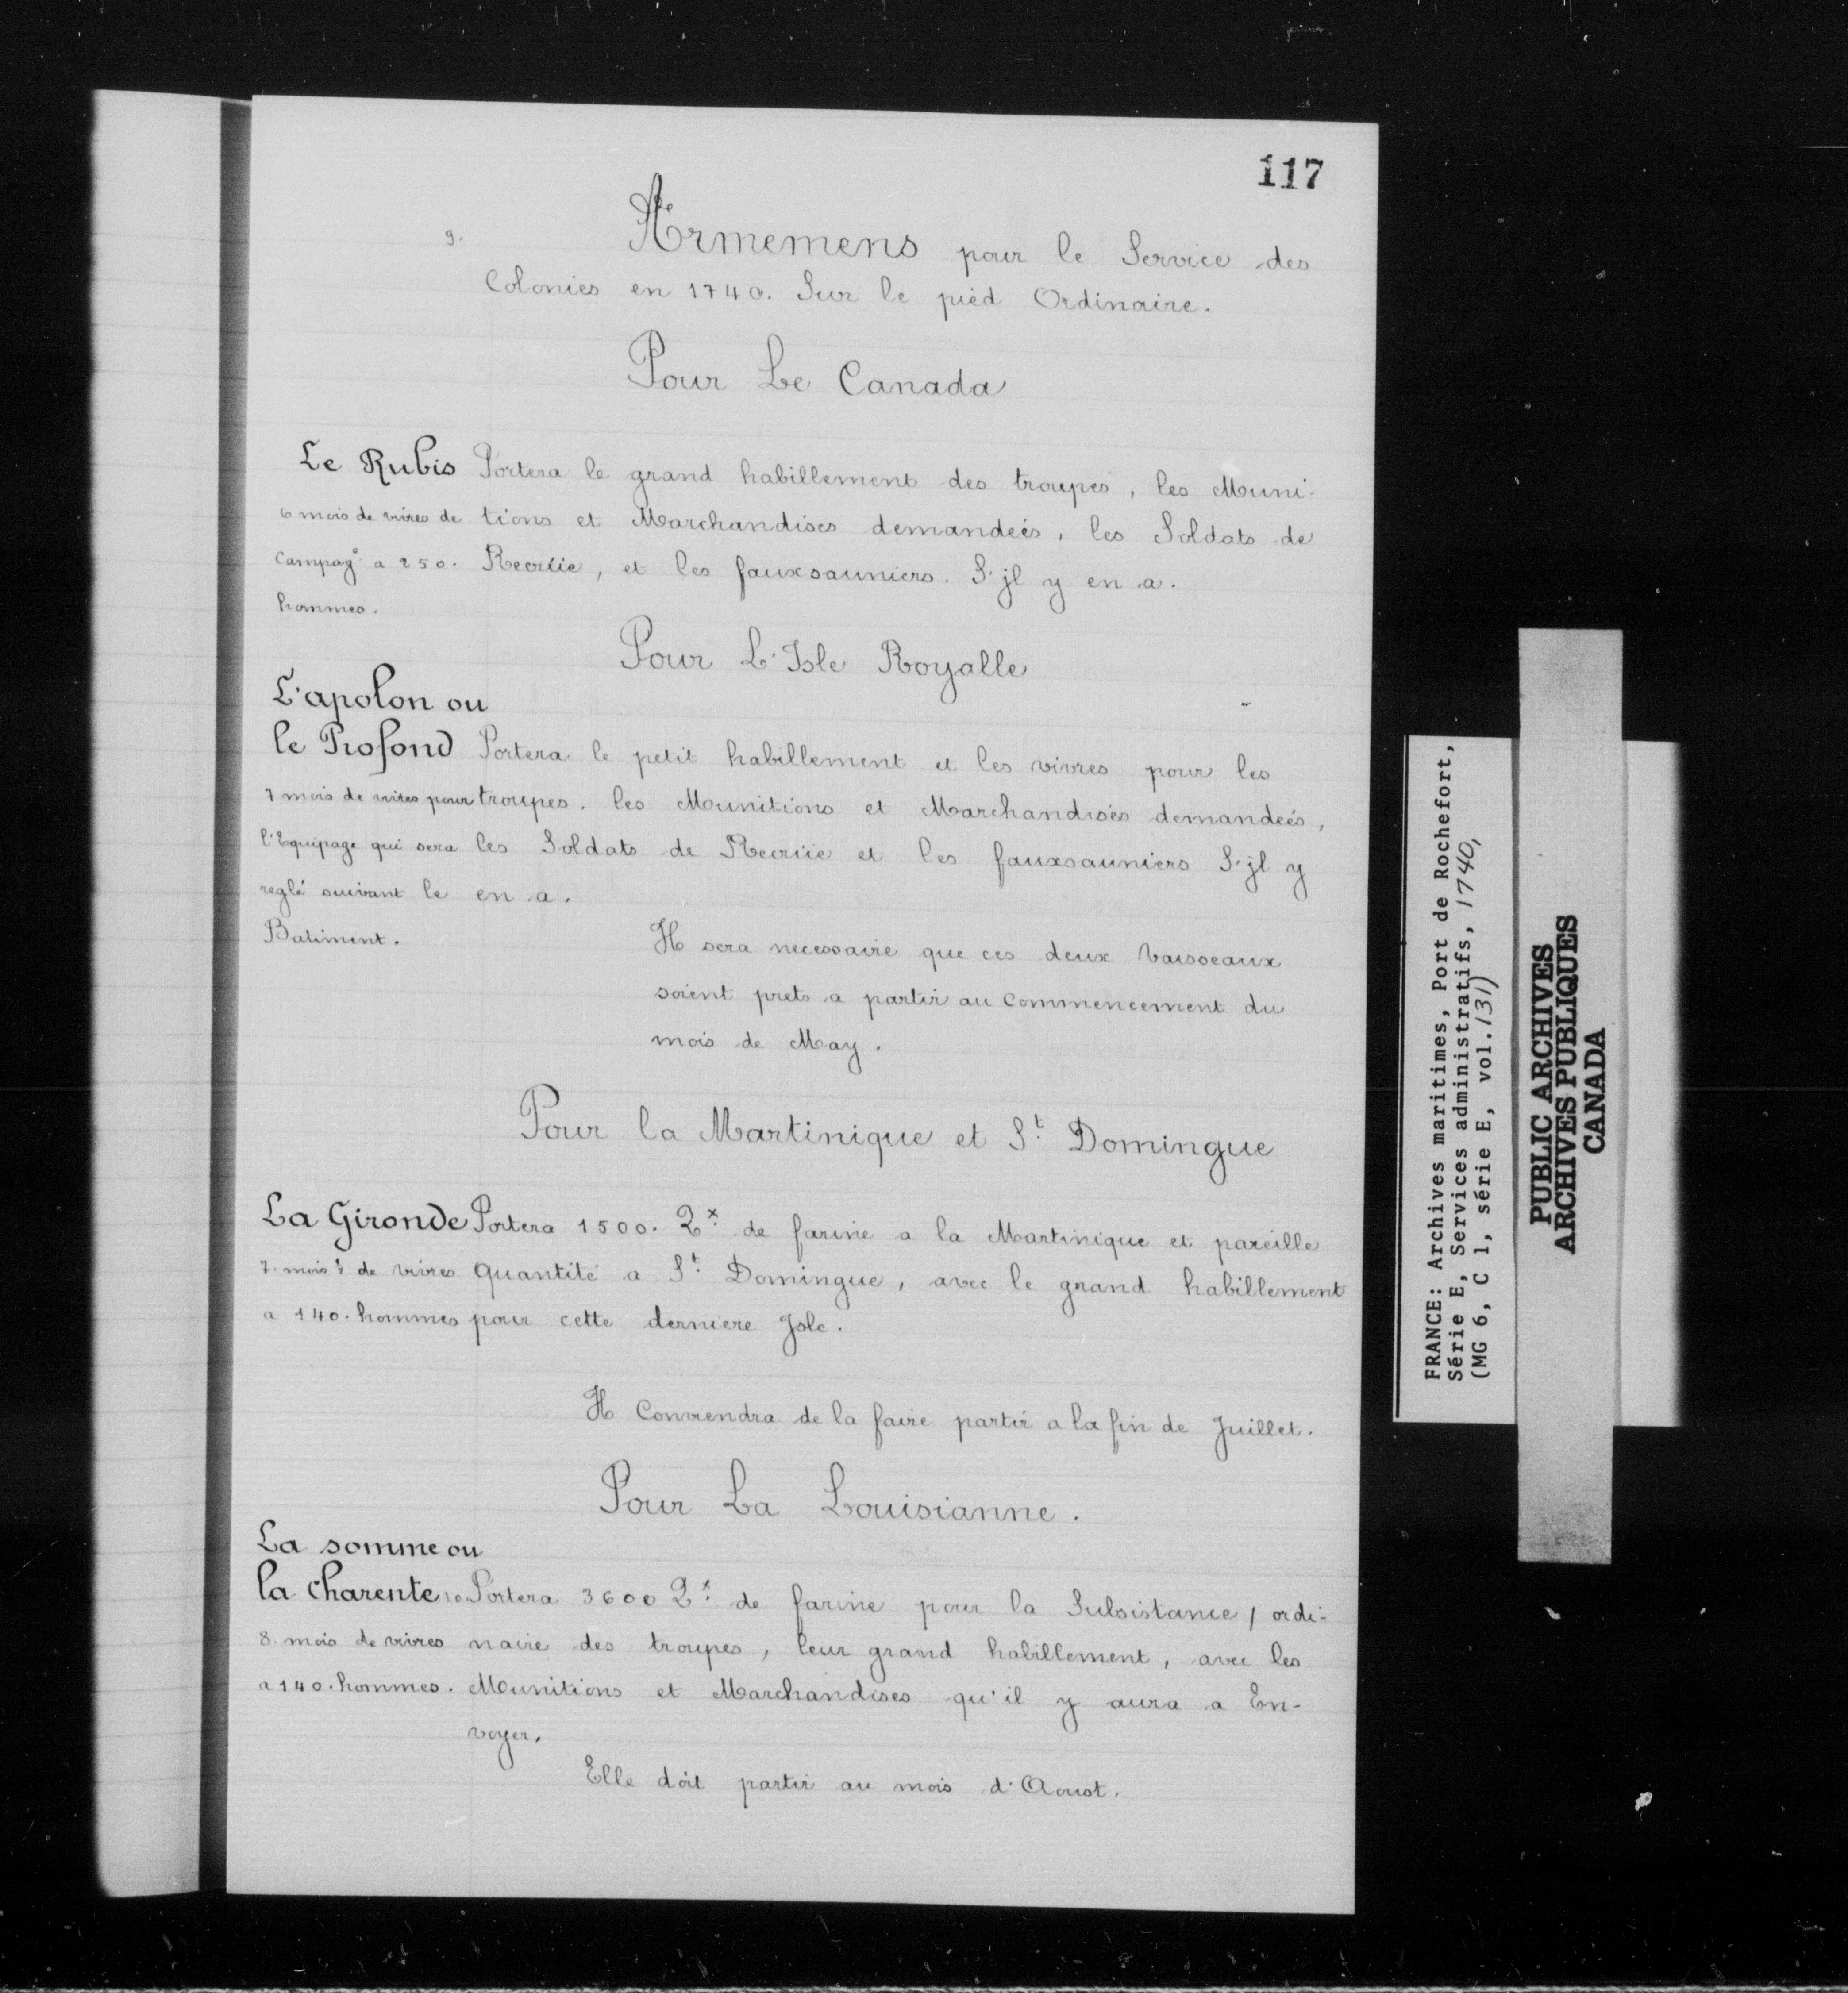 117
9.
Armemens pour le Service des
Colonies en 1740. Sur le pied Ordinaire.
Pour Le Canada
Le Rubis Portera le grand habillement des troupes, les Muni-
6 mois de vivres de tions et Marchandises demandeés, les Soldats de
Campag^e a 250. Recrüe, et les fauxsauniers. S'jl y en a.
hommes.
Pour L'Isle Royalle
L'apolon ou
le Profond Portera le petit habillement et les vivres pour les
7 mois de vivres pour troupes. les Munitions et Marchandises demandeés,
l'Equipage qui sera les Soldats de Recrüe et les fauxsauniers S'jl y
reglé suivant le en a.
Batiment.
Il sera necessaire que ces deux Vaisseaux
soient prets a partir au Commencement du
mois de May.
Pour la Martinique et S^t Domingue
La Gironde Portera 1500. Q^x de farine a la Martinique et pareille
7. mois ½ de vivres quantité a S^t Domingue, avec le grand habillement
a 140. hommes pour cette derniere Jsle.
Il Conviendra de la faire partir a la fin de Juillet.
Pour La Louisianne.
La somme ou
la Charente Portera 3600 Q^x de farine pour la Subsistance, ordi-
8. mois de vivres naire des troupes, leur grand habillement, avec les
a 140. hommes. Munitions et Marchandises qu'il y aura a En-
voyer.
Elle doit partir au mois d'Aoust.
FRANCE: Archives maritimes, Port de Rochefort,
Série E, Services administratifs, 1740,
(MG 6, C 1, série E, vol. 131)
PUBLIC ARCHIVES
ARCHIVES PUBLIQUES
CANADA